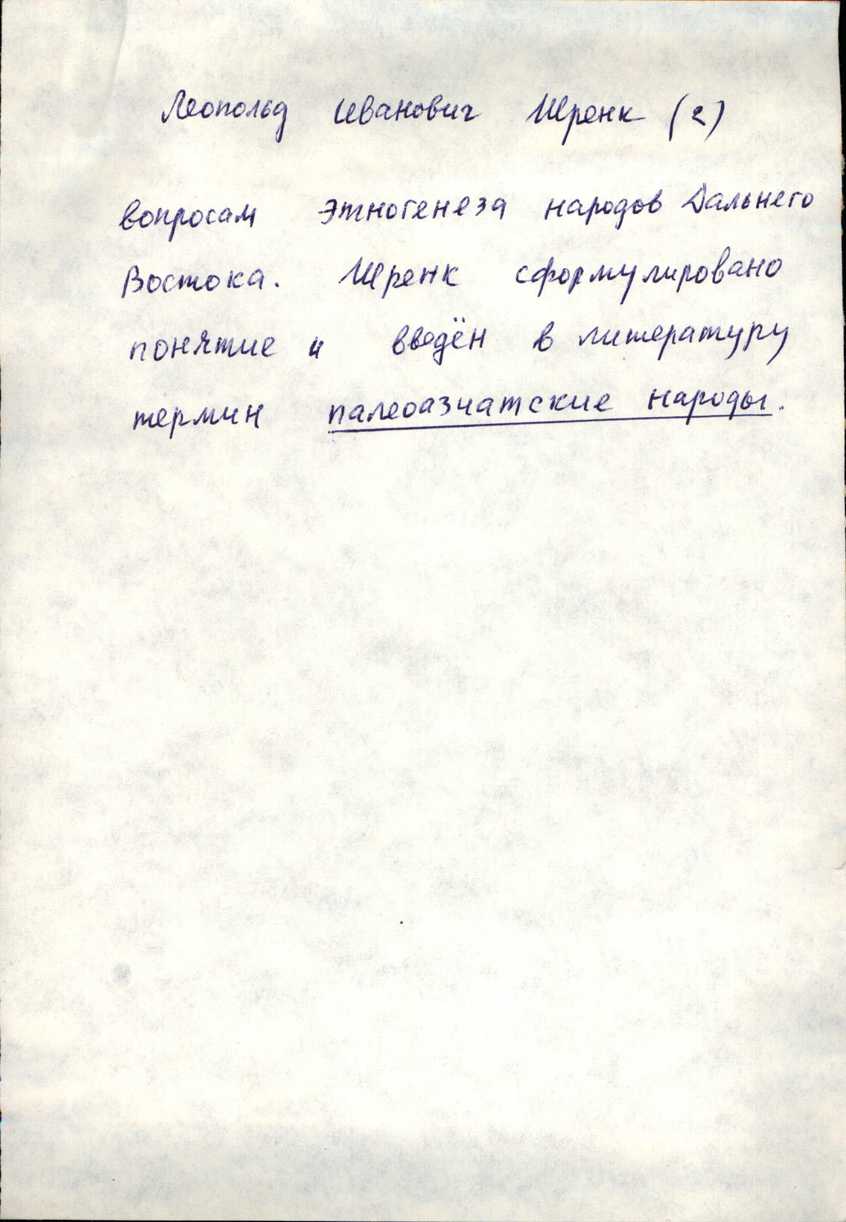 Леопольд Иванович Шренк (2)
вопросам этногенеза народов Дальнего
Востока. Шренк сформулировано
понятие и введён в литературу
термин палеоазиатские народы.